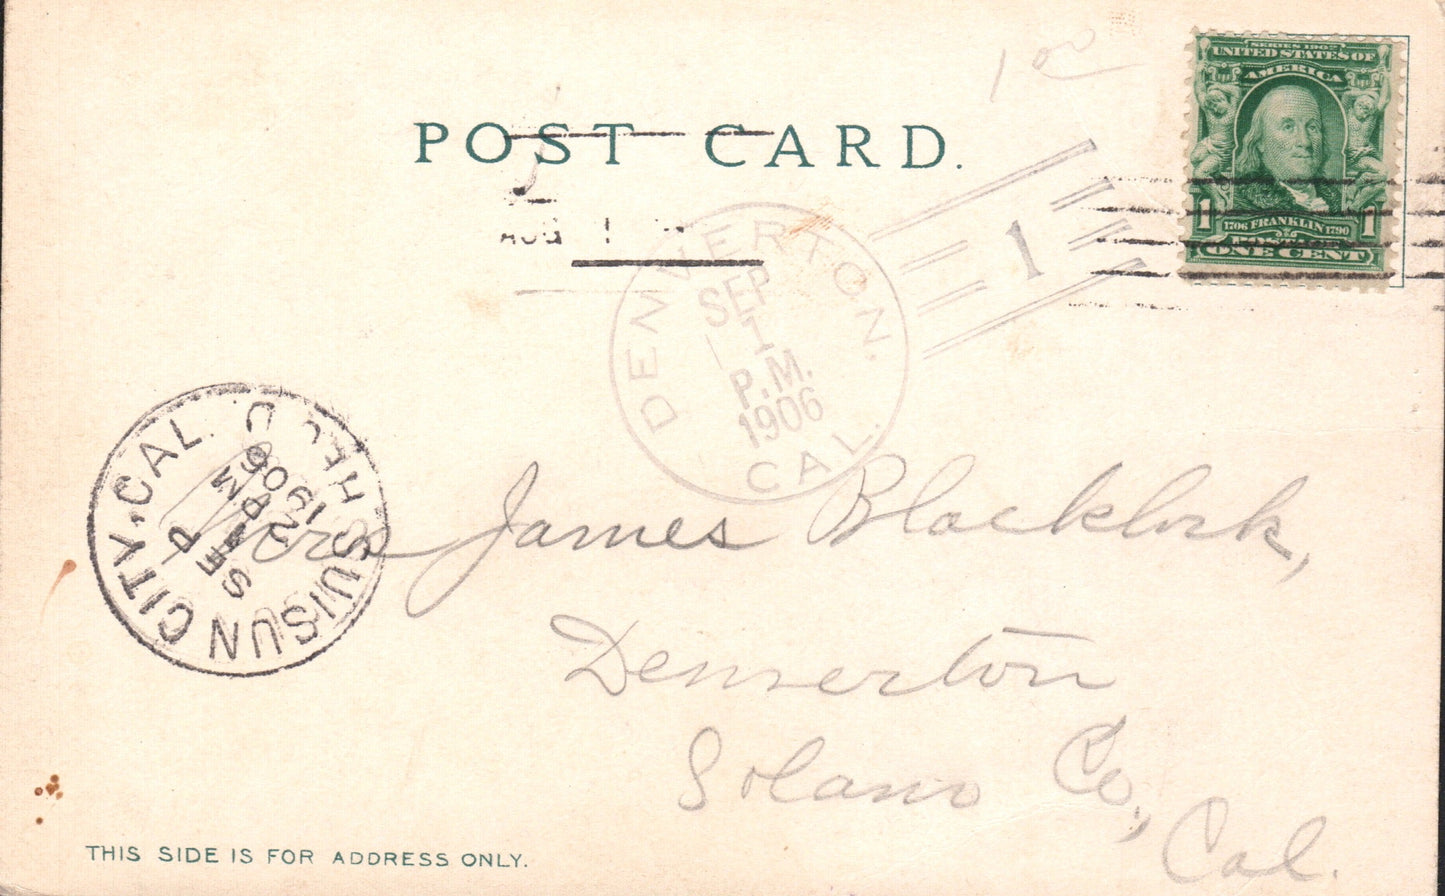 1 00
SERIES 1902
UNITED STATES OF
AMERICA
1 1706 FRANKLIN 1790 1
POSTAGE
ONE CENT
POST CARD.
AUG
1
DENVERTON, CAL.
SEP
1
P.M.
1906
SUISUN CITY, CAL. REC'D
SEP
2
PM
1906
Mrs James Blacklock,
Denverton
Solano Co.,
Cal.
THIS SIDE IS FOR ADDRESS ONLY.